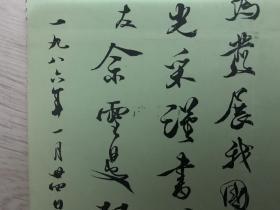 為發展我國
光采謹書
雲
一九八六年一月廿四日